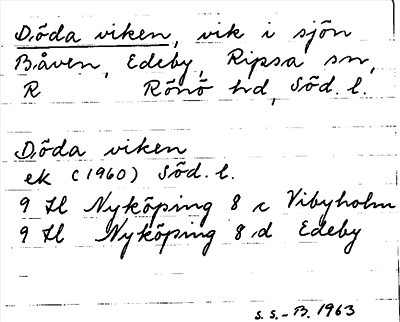 Döda viken, vik i sjön
Båven, Edeby, Ripsa sn,
R Rönö hd, Söd. l.
Döda viken
ek (1960) Söd. l.
9 H Nyköping 8 c Vibyholm
9 H Nyköping 8 d Edeby
S.S.-B. 1963